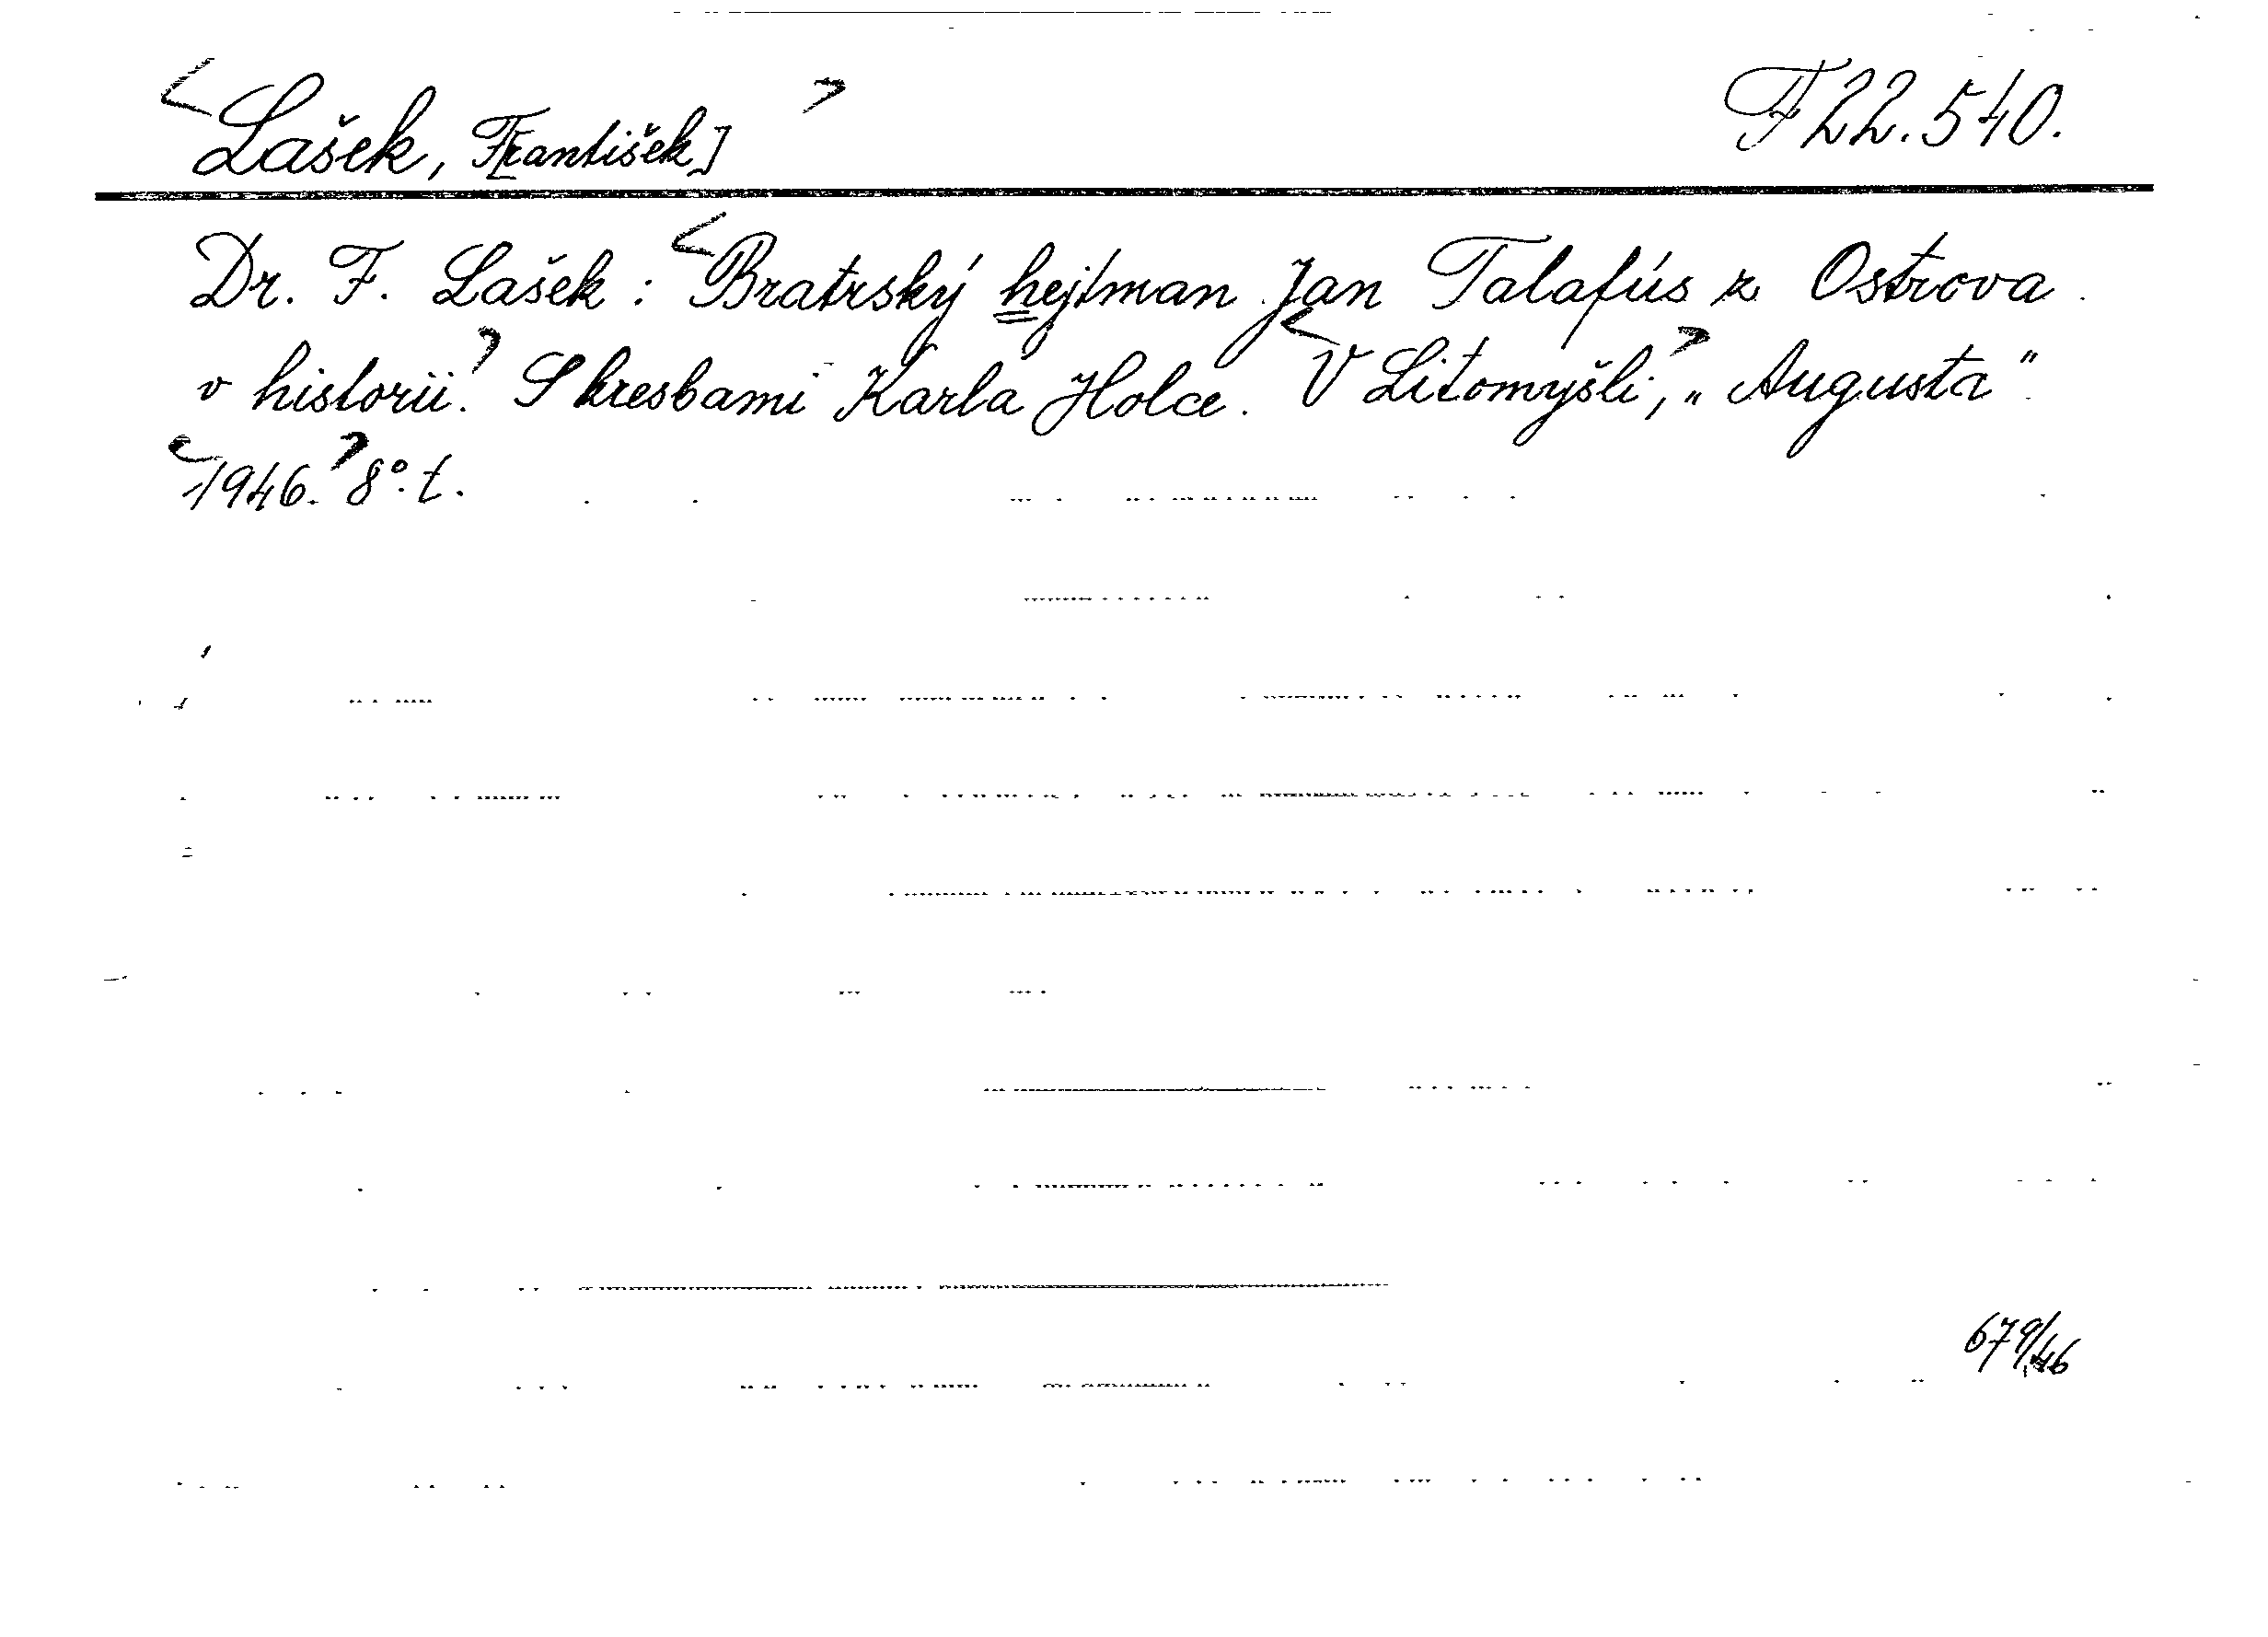 <Lašek, F[rantišek]> F 22.540.
Dr. F. Lašek: <Bratrský hejtman Jan Talafús z Ostrova
v historii.> S kresbami Karla Holce. <V Litomyšli,> „Augusta“.
<1946.> 8°. t.
679/46